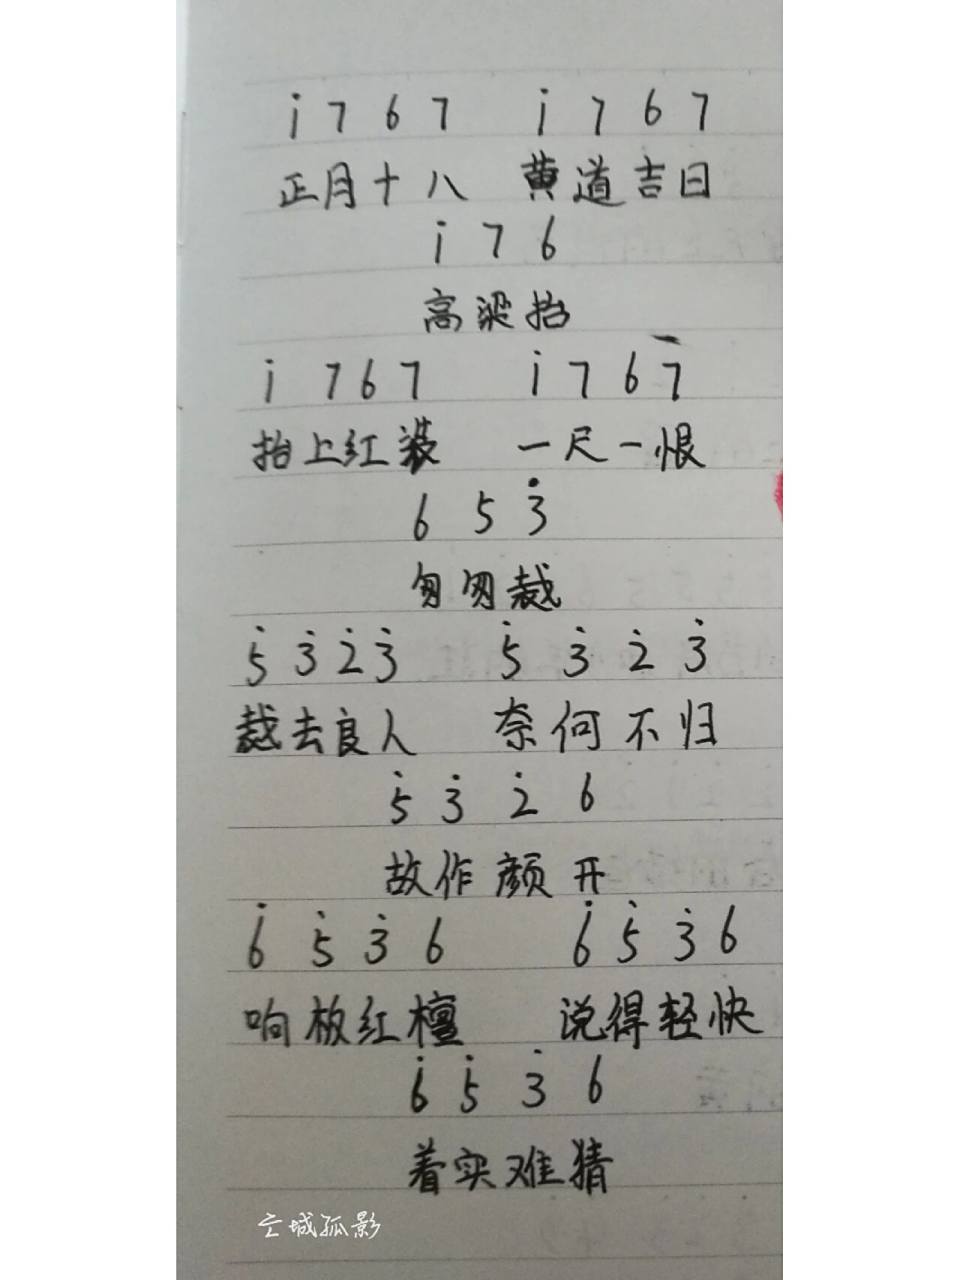 i̇ 7 6 7 i̇ 7 6 7
正月十八 黄道吉日
i̇ 7 6
高梁抬
i̇ 7 6 7 i̇ 7 6 7
抬上红装 一尺一恨
6 5 3̇
匆匆裁
5̇ 3̇ 2̇ 3̇ 5̇ 3̇ 2̇ 3̇
裁去良人 奈何不归
5̇ 3̇ 2̇ 6
故作颜开
6̇ 5̇ 3̇ 6 6̇ 5̇ 3̇ 6
响板红檀 说得轻快
6̇ 5̇ 3̇ 6
着实难猜
亡城孤影